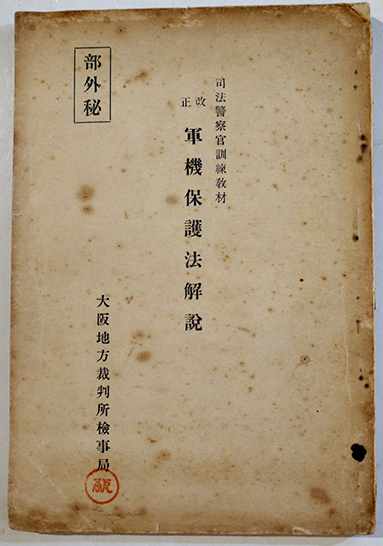 司法警察官訓練教材
改正
軍機保護法解說
部外秘
大阪地方裁判所檢事局